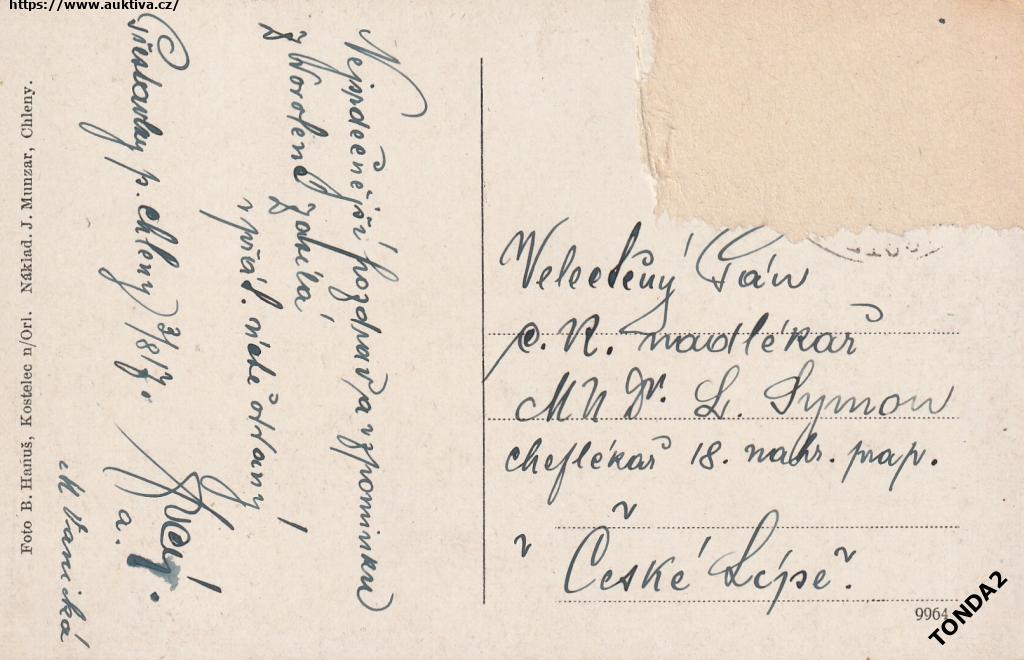 https://www.auktiva.cz/
Foto B. Hanuš, Kostelec n/Orl. Náklad. J. Munzar, Chleny.
Nejsrdečnější pozdrav a vzpomínku
z
zasílá
Přestavlky p. Chleny 31/8 17.
a.
Velectěný Pán
c. K. nadlékař
MUDr. L. Symon
cheflékař 18. nahr. prap.
v
v České Lípě.
9964
TONDA2